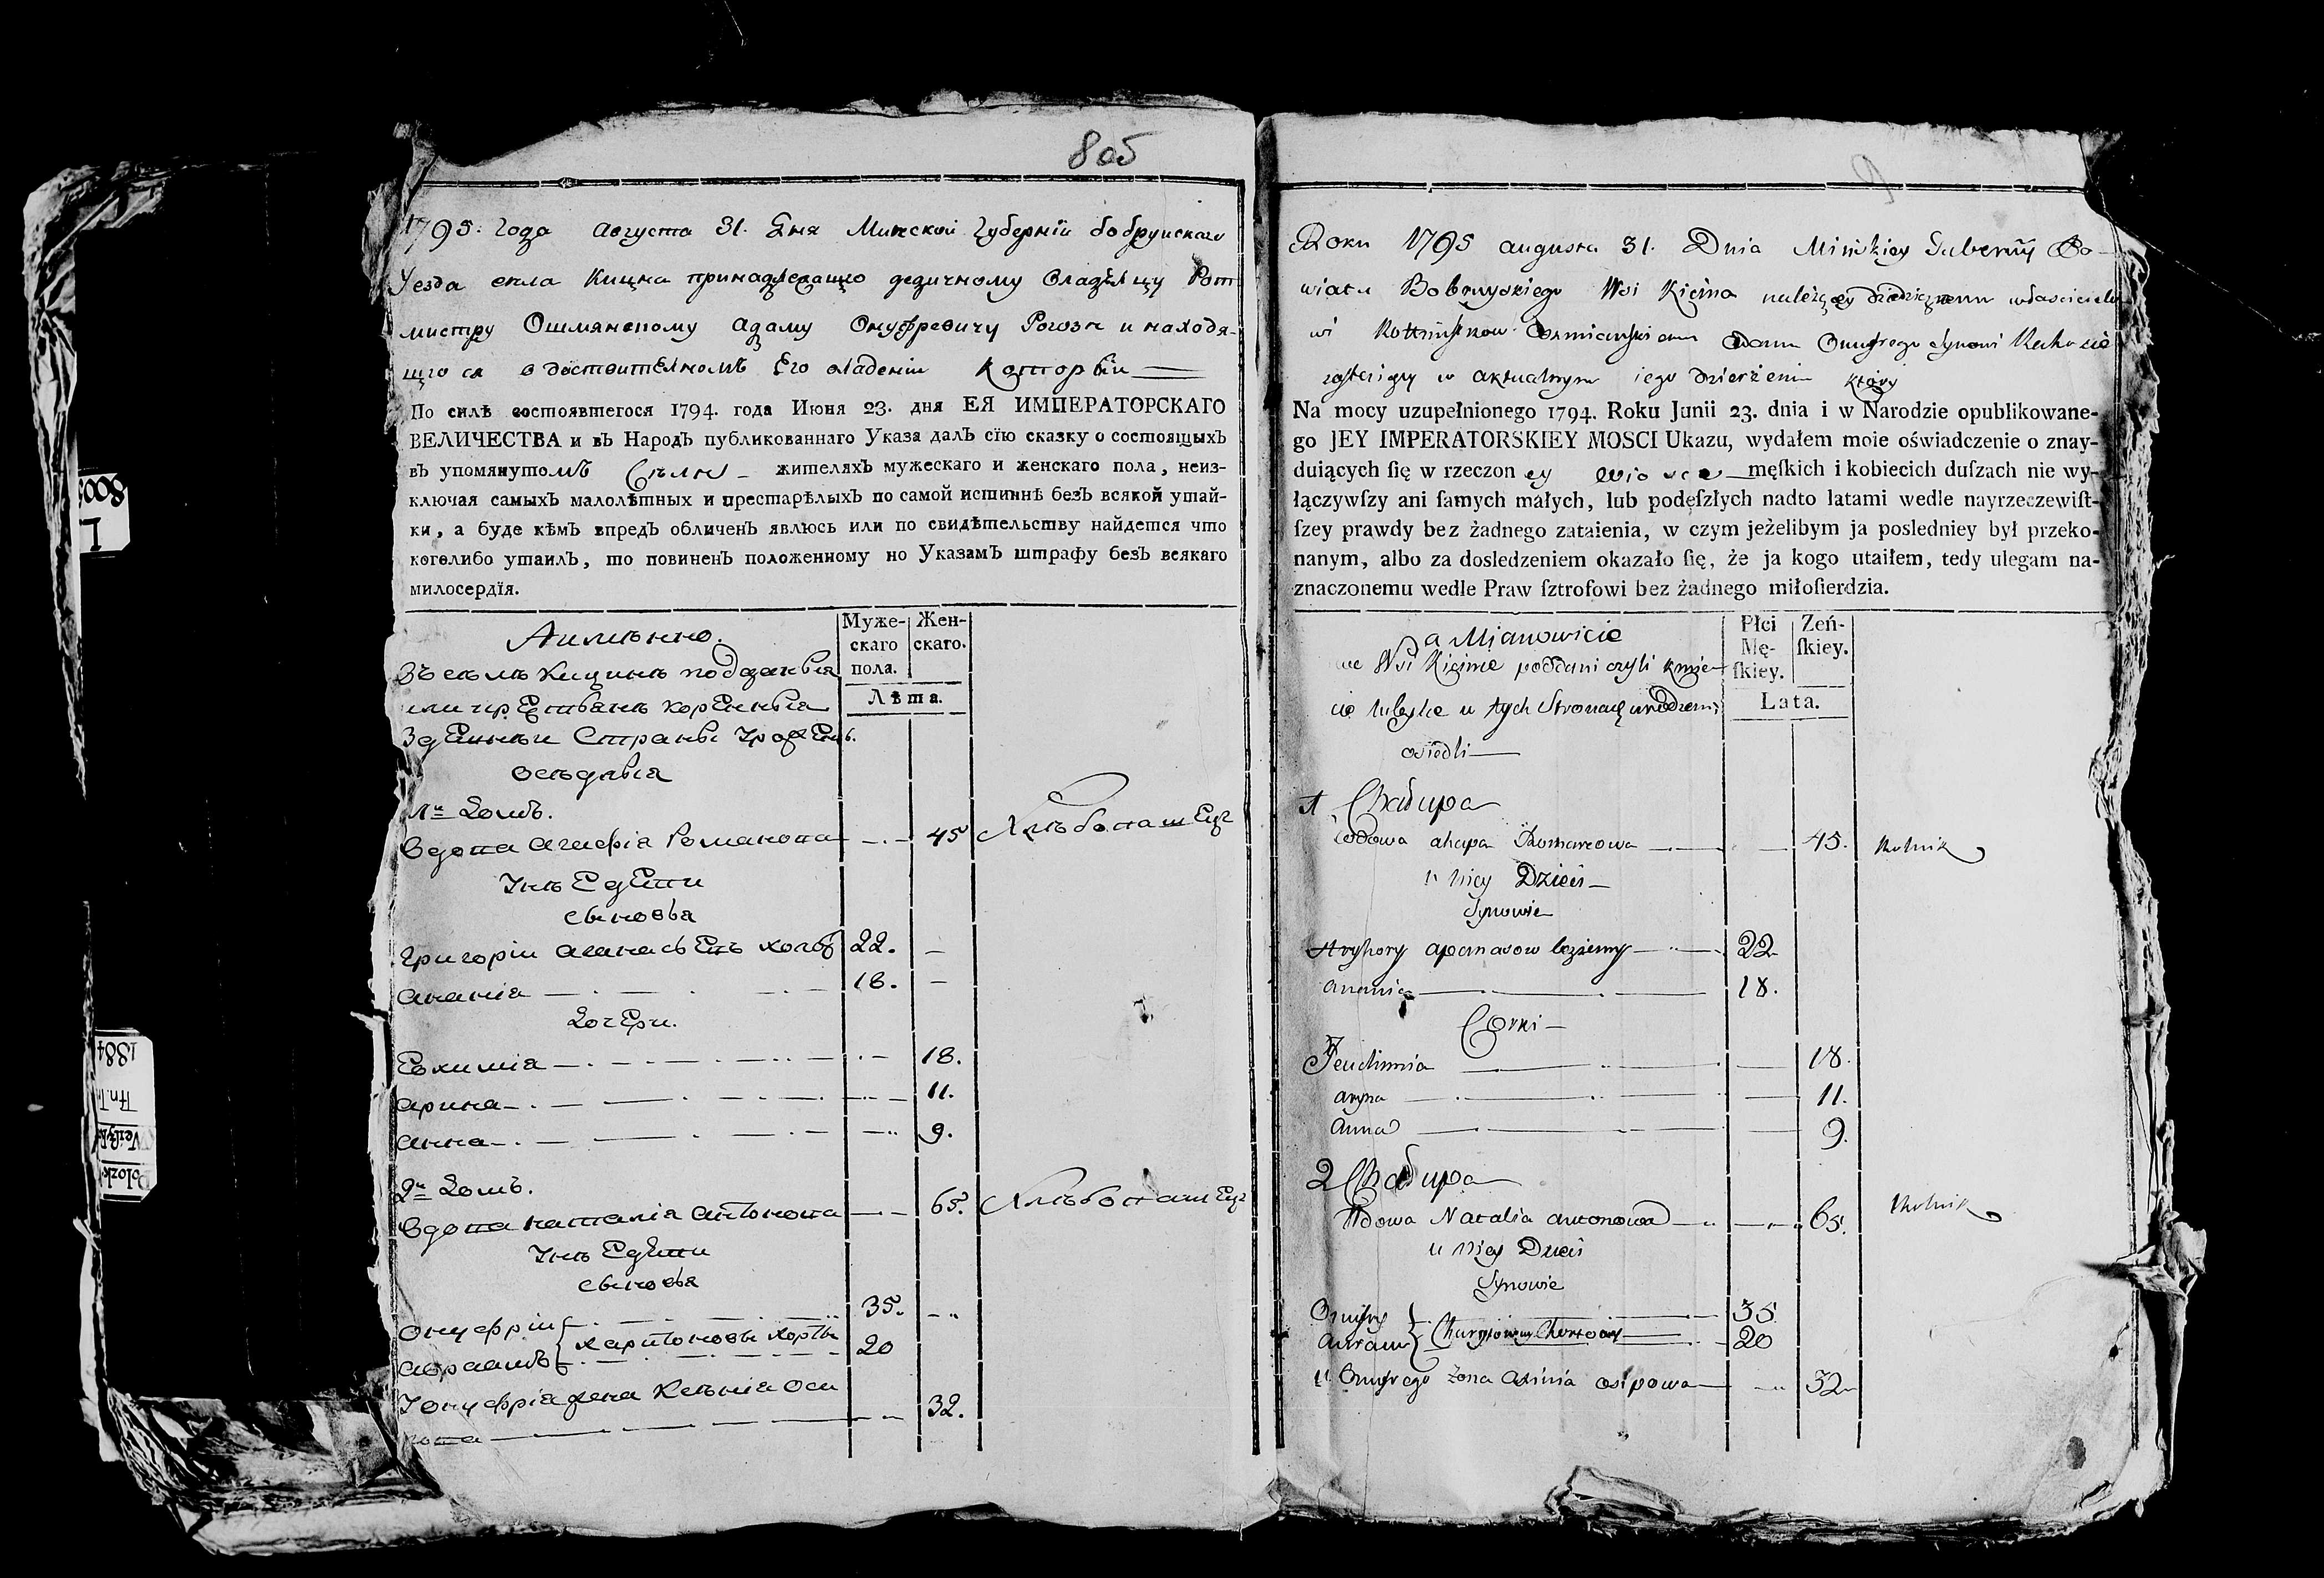 8 об
1795. Года августа 31. Дня Минской Губернїи бобруискаго
Уезда села Кицна принадлежащего дедичному владѣлцу Рот
мистру Ошмянскому адаму Онуфревичу и находя-
щгося в деиствителномъ Его владении Которыи
По силѣ состоявшегося 1794. года Июня 23. дня ЕЯ ИМПЕРАТОРСКАГО
ВЕЛИЧЕСТВА и въ Народъ публикованнаго Указа далъ сїю сказку о состоящыхъ
въ упомянутомъ Селѣ жителяхъ мужескаго и женскаго пола, неиз-
ключая самыхъ малолѣтных и престарѣлыхъ по самой истиннѣ безъ всякой утай-
ки, а буде кѣмъ впредъ обличенъ явлюсь или по свидѣтельству найдется что
коголибо утаилъ, то повиненъ положенному по Указамъ штрафу безъ всякаго
милосердїя.
Аимѣнно.
Муже-
скаго
пола.
Жен-
скаго.
Лѣта.
Въ селѣ Кицинѣ подданыя
или крестьянѣ коренныя
здешнеи Страны урожен.
оседлыя
1й Домъ.
Вдова Агафіа Романова 45 Хлѣбопашец
У нѣе дети
сыновья
Григории 22.
анания 18.
Дочери.
Евхимїа 18.
арина 11.
анна 9.
2й Домъ.
Вдова наталїа антонова 65. Хлѣбопашец
У нѣе дети
сыновья
Онуфрїи 35.
авраамъ харитоновы 20
У онуфрїа жена Ксенїа Оси
пова 32.
Roku 1795 augusta 31. Dnia Minskiey Gubernij Po-
wiatu Bobruyskiego Wsi Kicina należącey dziedzicznemu własciciel
wi Oszmianskiemu Adamu Onufrego synowi
w aktualnym iego dzierżeniu który
Na mocy uzupełnionego 1794. Roku Junii 23. dnia i w Narodzie opublikowane-
go JEY IMPERATORSKIEY MOSCI Ukazu, wydałem moie oświadczenie o znay-
duiących ſię w rzeczon ey wiosce męſkich i kobiecich duſzach nie wy-
łączywſzy ani ſamych małych, lub podęſzłych nadto latami wedle nayrzeczewiſt-
ſzey prawdy bez żadnego zataienia, w czym jeżelibym ja posledniey był przeko-
nanym, albo za dosledzeniem okazało ſię, że ja kogo utaiłem, tedy ulegam na-
znaczonemu wedle Praw ſztrofowi bez żadnego miłoſierdzia.
a Mianowicie
Płci
Mę-
ſkiey.
Żeń-
ſkiey.
Lata.
we Wsi Kicinie poddani czyli kmie-
cie tuteyſze w tych Stronach urodzeni
osiedli
1 Chałupa
Wdowa ahapa Romanowa 45. Rolnik
u niey Dzieci
Synowie
Hryhory apanasow 22
anania 18.
Corki
Jeuchimia 18.
aryna 11.
Anna 9.
2 Chałupa
Wdowa Natalia antonowa 65. Rolnik
u niey Dzieci
Synowie
Onufry 35
Awram 20
u Onufrego żona Axinia osipowa 32